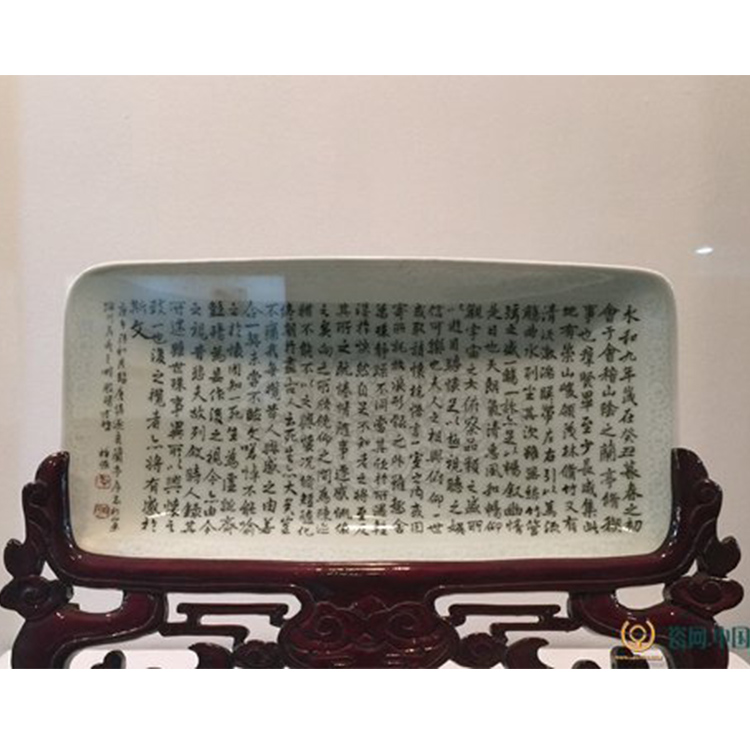 永和九年歲在癸丑暮春之初
會于會稽山陰之蘭亭脩稧
事也羣賢畢至少長咸集此
地有崇山峻領茂林脩竹又有
清流激湍暎帶左右引以為流
觴曲水列坐其次雖無絲竹管
弦之盛一觴一詠亦足以暢敘幽情
是日也天朗氣清惠風和暢仰
觀宇宙之大俯察品類之盛所
以遊目騁懷足以極視聽之娛
信可樂也夫人之相與俯仰一世
或取諸懷抱悟言一室之內或因
寄所託放浪形骸之外雖趣舍
萬殊靜躁不同當其欣於所遇暫
得於己快然自足不知老之將至及
其所之既惓情隨事遷感慨係
之矣向之所欣俛仰之間為陳迹
猶不能不以之興懷況脩短隨化
終期於盡古人云死生亦大矣豈
不痛哉每攬昔人興感之由若
合一契未嘗不臨文嗟悼不能喻
之於懷固知一死生為虛誕齊
彭殤為妄作後之視今亦由今
之視昔悲夫故列敘時人錄其
所述雖世殊事異所以興懷其
致一也後之攬者亦將有感於
斯文
瓷网.中国